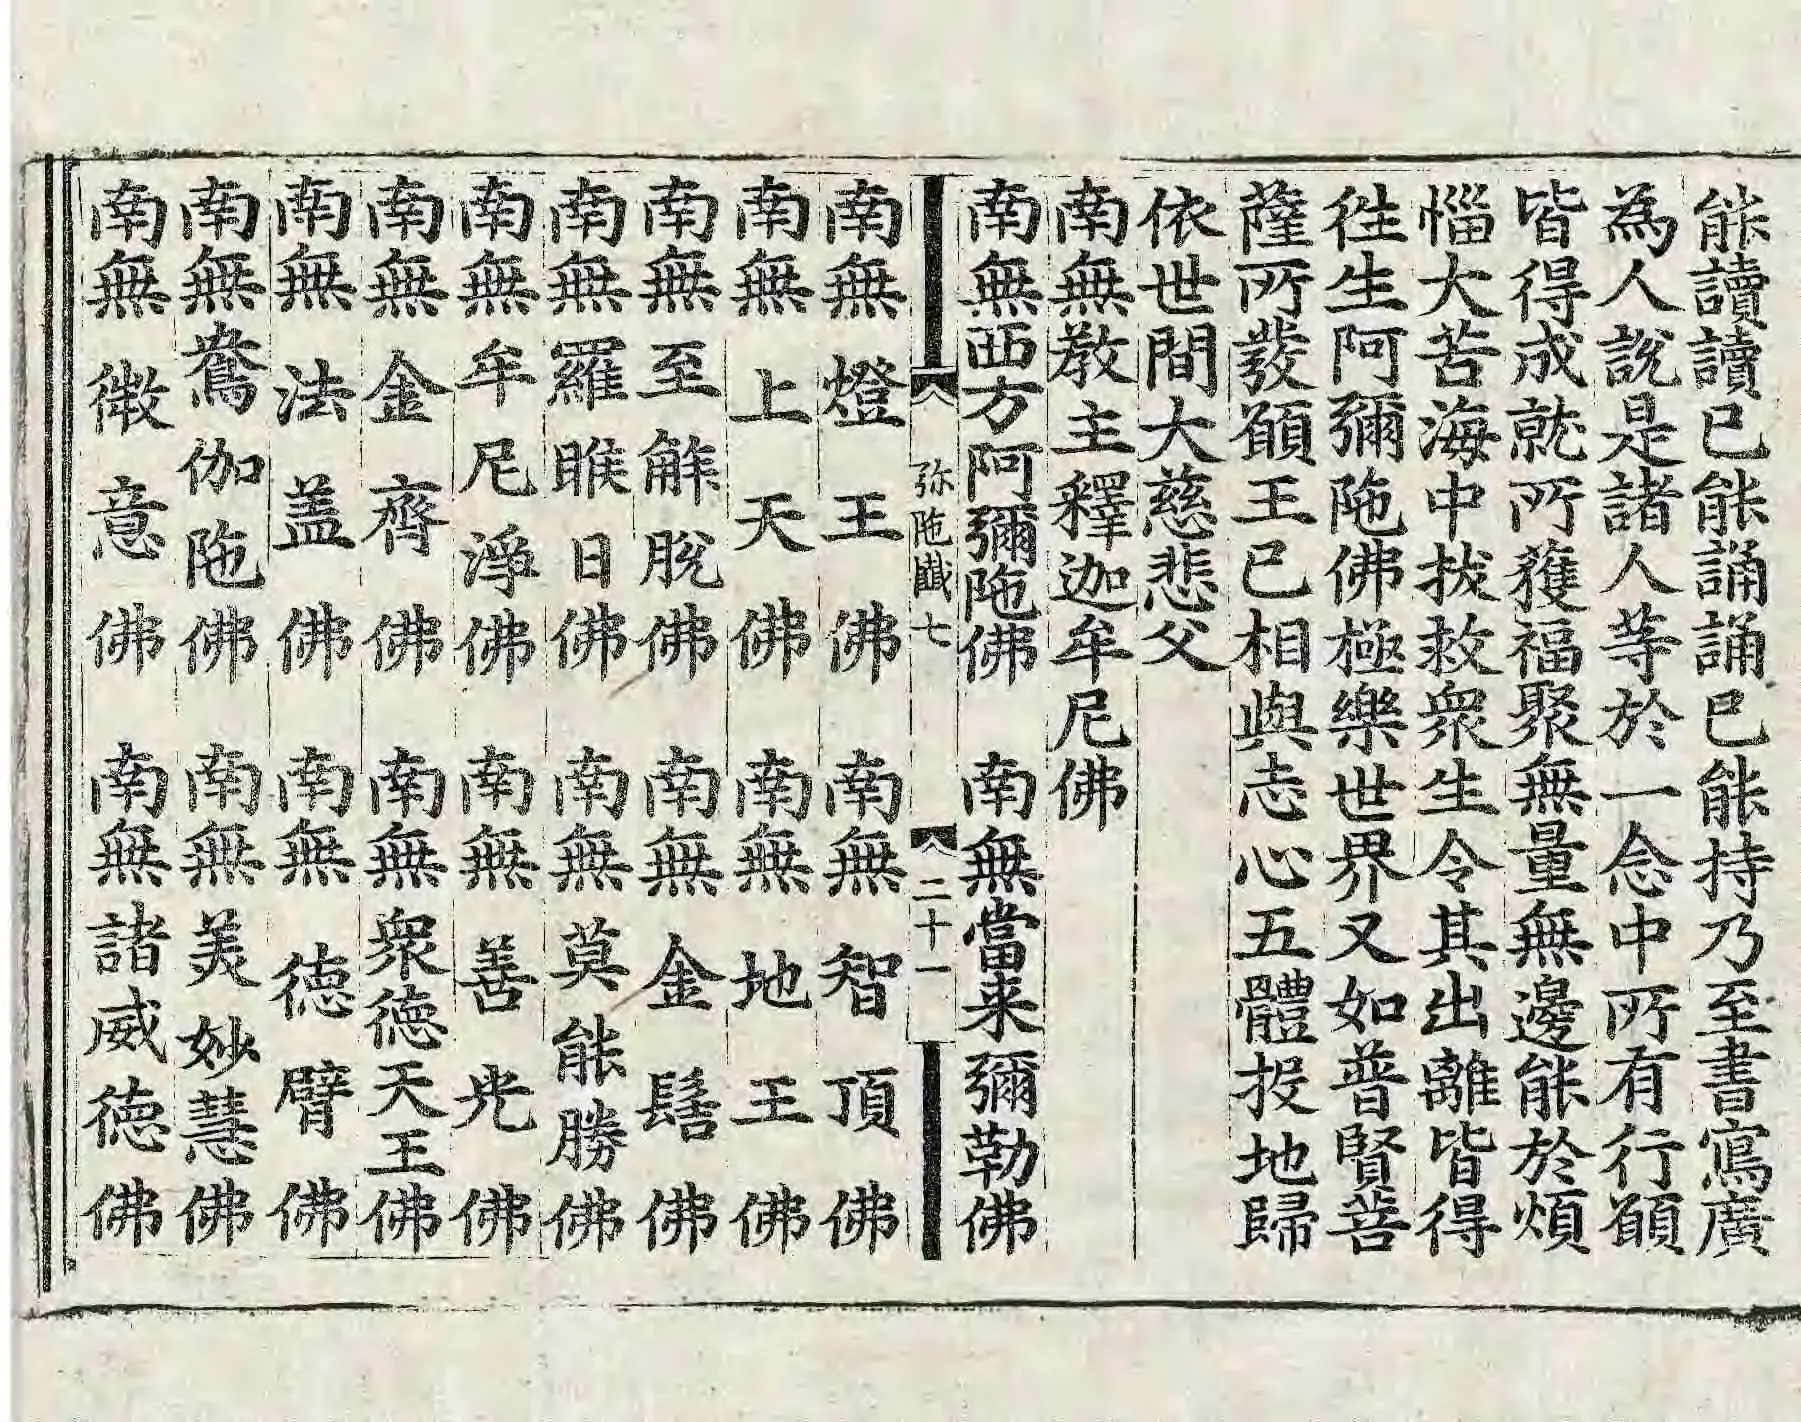 能讀讀已能誦誦已能持乃至書寫廣
為人說是諸人等於一念中所有行願
皆得成就所獲福聚無量無邊能於煩
惱大苦海中拔救衆生令其出離皆得
往生阿彌陁佛極樂世界又如普賢菩
薩所發願王已相與志心五體投地歸
依世間大慈悲父
南無教主釋迦牟尼佛
南無西方阿彌陁佛 南無當来彌勒佛
弥陁懴七 二十一
南無燈王佛 南無智頂佛
南無上天佛 南無地王佛
南無至解脫佛 南無金髻佛
南無羅睺日佛 南無莫能勝佛
南無牟尼淨佛 南無善光佛
南無金齊佛 南無衆德天王佛
南無法盖佛 南無德臂佛
南無鴦伽陁佛 南無美妙慧佛
南無微意佛 南無諸威德佛